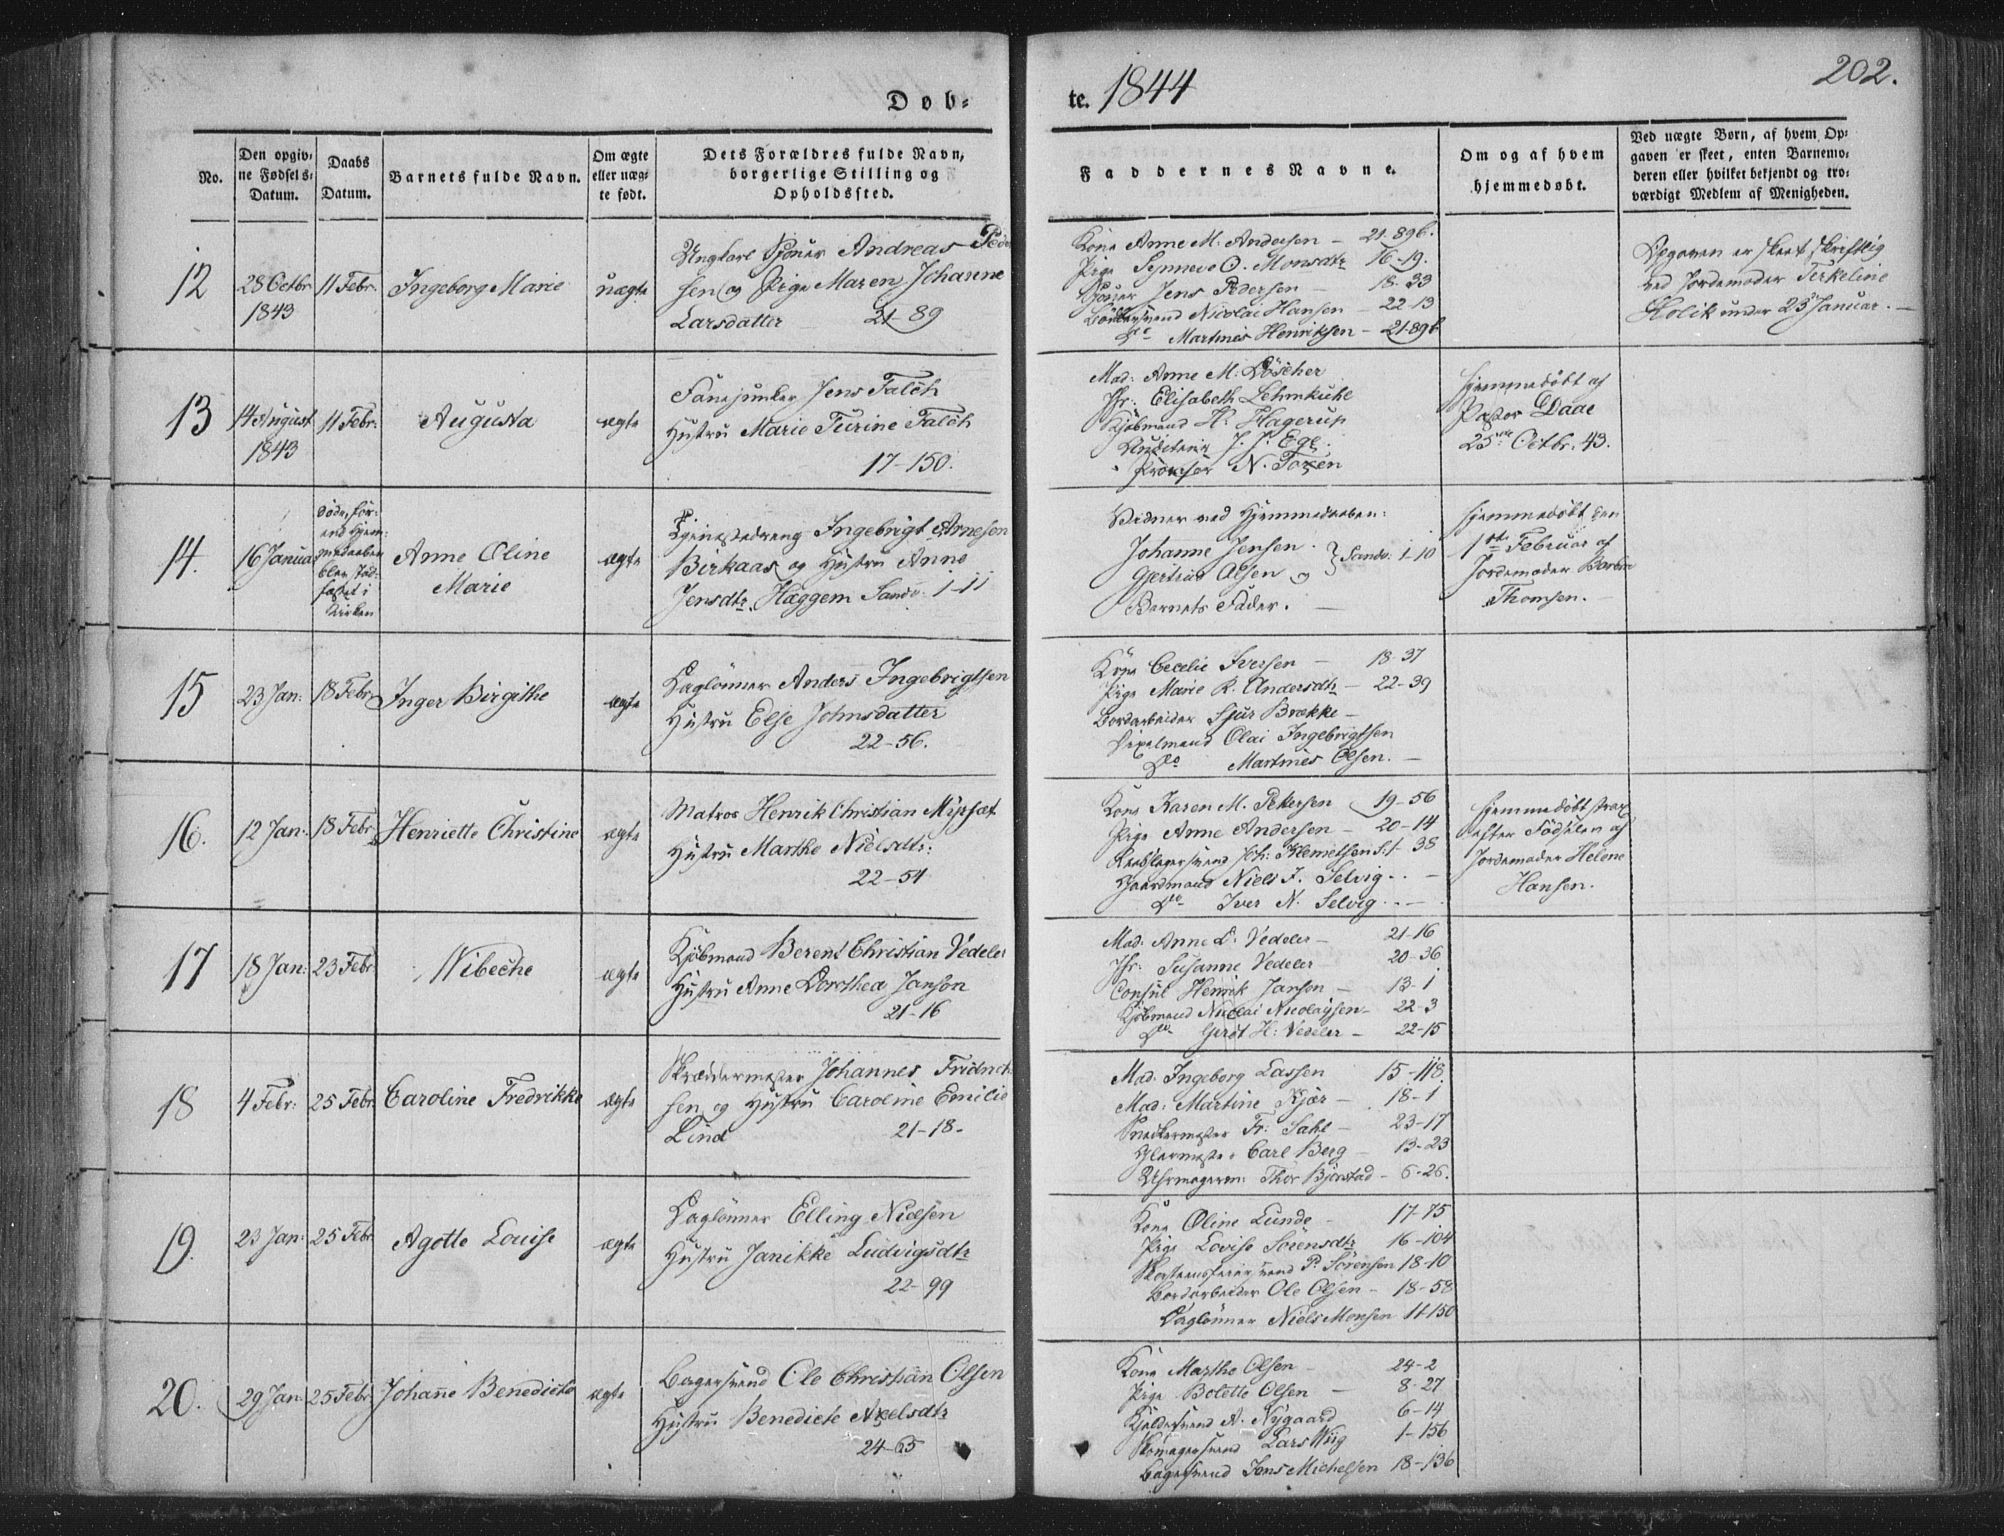 202.
Døb-
te. 1844
No.
Den opgiv-
ne Fødsels-
Datum.
Daabs
Datum.
Barnets fulde Navn.
Om ægte
eller uæg-
te født.
Dets Forældres fulde Navn,
borgerlige Stilling og
Opholdssted.
Faddernes Navne.
Om og af hvem
hjemmedøbt.
Ved uægte Børn, af hvem Op-
gaven er skeet, enten Barnemo-
deren eller hvilket bekjendt og tro-
værdigt Medlem af Menigheden.
12
28 Octbr
1843
11 Febr.
Ingeborg Marie
uægte
Ungkarl Andreas Peder
sen og Pige Maren Johanne
Larsdatter 21-89
Kone Anne M. Andersen - 21-896.
Pige Synneve O. Monsdtr 16-19.
Jens Pedersen - 18-33
Nicolai Hansen - 22-13
Do Martines Henriksen - 21-896
Opgaven er skeet skriftlig
ved Jordemoder Terkeline
Holck under 25 Januar. -
13
14 August
1843
11 Febr.
Augusta
ægte
Fanejunker Jens Falch
Hustru Marie Turine Falch
17-150.
Mad: Anne M. Döscher
Jfr: Elisabeth Lehmkuhl
Kjöbmand H. Hagerup
J. J. Ege.
N. Foxen
Hjemmedøbt af
Pastor Daae
25de Octbr. 43.
14.
16 Januar
døde, før-
end Hjem-
medaaben
blev stad-
fæstet i
Kirken
Anne Oline
Marie
ægte
Tjenestedreng Ingebrigt Arnesen
Birkaas og Hustru Anne
Jensdtr Haggem Sandv. 1-11
Vidner ved Hjemmedaaben:
Johanne Jensen.
Gjertrud Olsen og } Sandv. 1-10
Barnets Fader. -
Hjemmedøbt den
1ste Februar af
Jordemoder Barbra
Thomsen. -
15
23 Jan:
18 Febr.
Inger Birgithe
ægte
Daglönner Anders Ingebrigtsen
Hustru Else Johnsdatter
22-56.
Kone Cecelie Iversen - 18-37
Pige Marie R. Andersdtr - 22-39
Bordarbeider Sjur Brække -
Olai Ingebrigtsen
Do Martines Olsen. -
16.
12 Jan:
18 Febr.
Henriette Christine
ægte
Matros Henrik Christian
Hustru Marthe Nielsdtr:
22-54
Kone Karen M. Pettersen 19-56
Pige Anne Andersen - 20-14
Reebslagersvend Joh: Klemetsen 38
Gaardmand Niels I. Selvig.. -
Do Iver N. Selvig...
Hjemmedøbt strax
efter Fødselen af
Jordemoder Helene
Hansen.
17
18 Jan:
23 Febr.
Wibeche
ægte
Kjöbmand Berent Christian Vedeler
Hustru Anne Dorothea Janson
21-16
Mad: Anne D. Vedeler - 21-16
Jfr: Susanne Vedeler 20-36
Consul Henrik Janson - 13-1
Kjöbmand Nicolai Nicolaysen - 22-3
Do Gerdt H: Vedeler - 22-15
18
4 Febr:
25 Febr.
Caroline Fredrikke
ægte
Skræddermester Johannes Fridrich
sen og Hustru Caroline Emilie
Lind 21-18.
Mad: Ingeborg Lassen 15-118.
Mad: Martine Kjær - 18-1
Snedkermester Fr. Sahl - 23-17
Carl Berg - 13-23
Uhrmager Thor Bjorstad - 6-26.
19.
23 Jan:
25 Febr.
Agotte Louise
ægte
Daglönner Elling Nielsen
Hustru Janikke Ludvigsdtr
22-99
Kone Oline Lunde - 17-75
Pige Lovise Sörensdtr 16-104
Skorsteensfeiersvend P. Sörensen 18-10
Bordarbeider Ole Olsen - 18-58
Daglönner Niels Monsen 11-150
20.
29 Jan:
25 Febr.
Johanne Benedicte
ægte
Bagersvend Ole Christian Olsen
Hustru Benedicte Axelsdtr
24-65
Kone Marthe Olsen - 24-2
Pige Bolette Olsen - 8-27
Kjeldersvend A. Nygaard 6-14
Skomagersvend Lars Wiig 1-156
Bagersvend Jens Michelsen 18-136